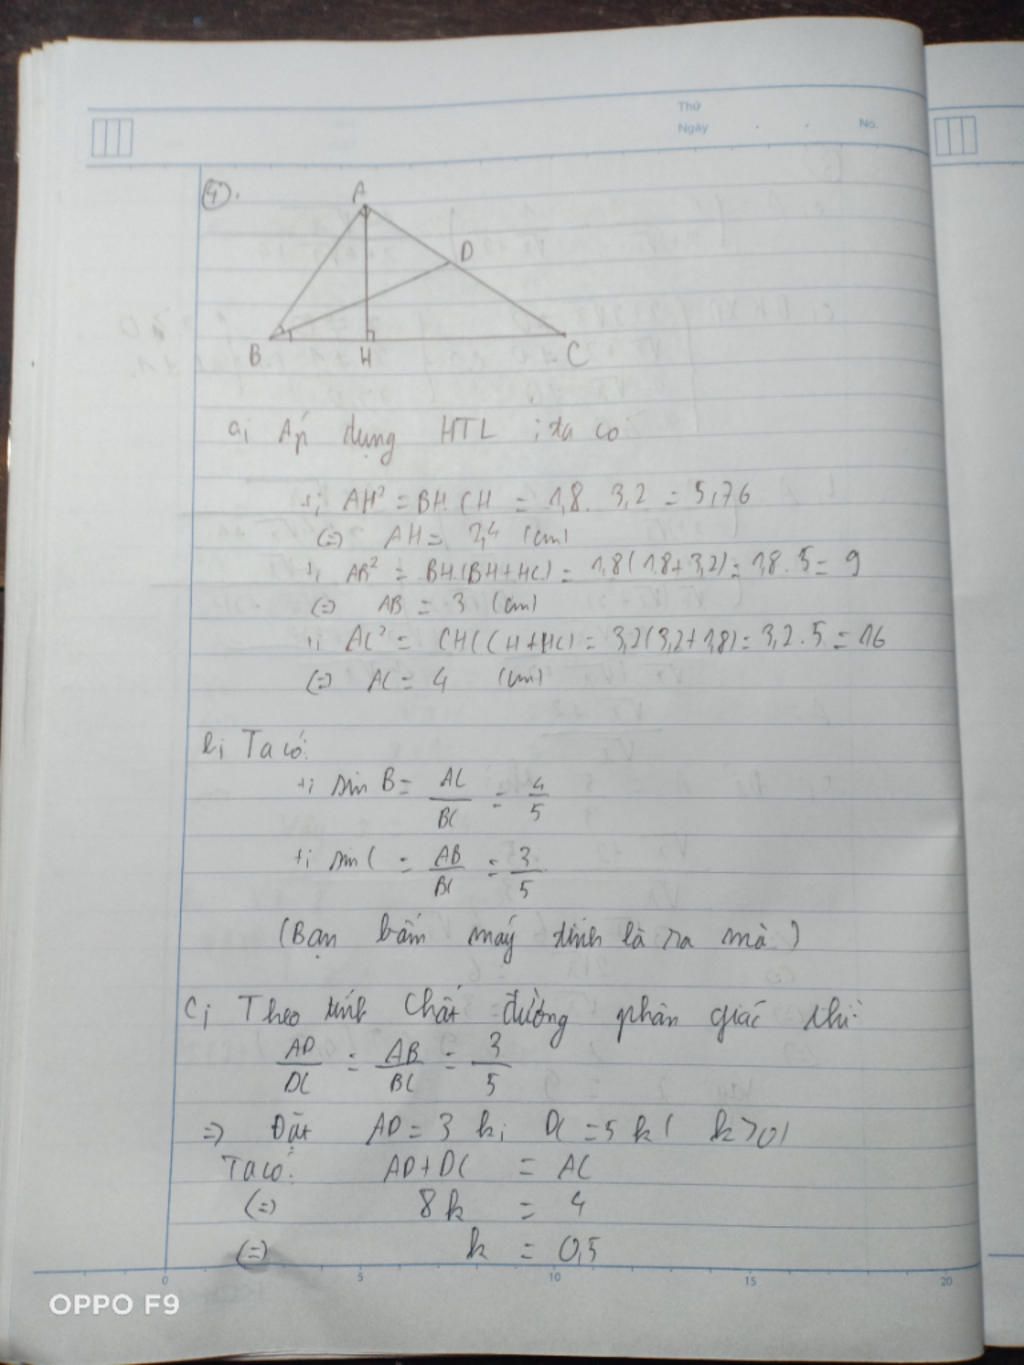 Thứ
Ngày . . No.
4.
A
D
B H C
a; Áp dụng HTL ; ta có
+; AH² = BH.CH = 1,8. 3,2 = 5,76
(=) AH = 2,4 (cm)
+; AB² = BH.(BH+HC) = 1,8(1,8+3,2) = 1,8.5 = 9
(=) AB = 3 (cm)
+; AC² = CH(CH+HC) = 3,2(3,2+1,8) = 3,2.5 = 16
(=) AC = 4 (cm)
b; Ta có:
+; sin B = AC/BC = 4/5
+; sin C = AB/BC = 3/5
(Bạn bấm máy tính là ra mà)
C; Theo tính chất đường phân giác thì:
AD/DC = AB/BC = 3/5
=> Đặt AD = 3k; DC = 5k ( k>0)
Ta có: AD+DC = AC
(=) 8k = 4
(=) k = 0,5
0 5 10 15 20
OPPO F9